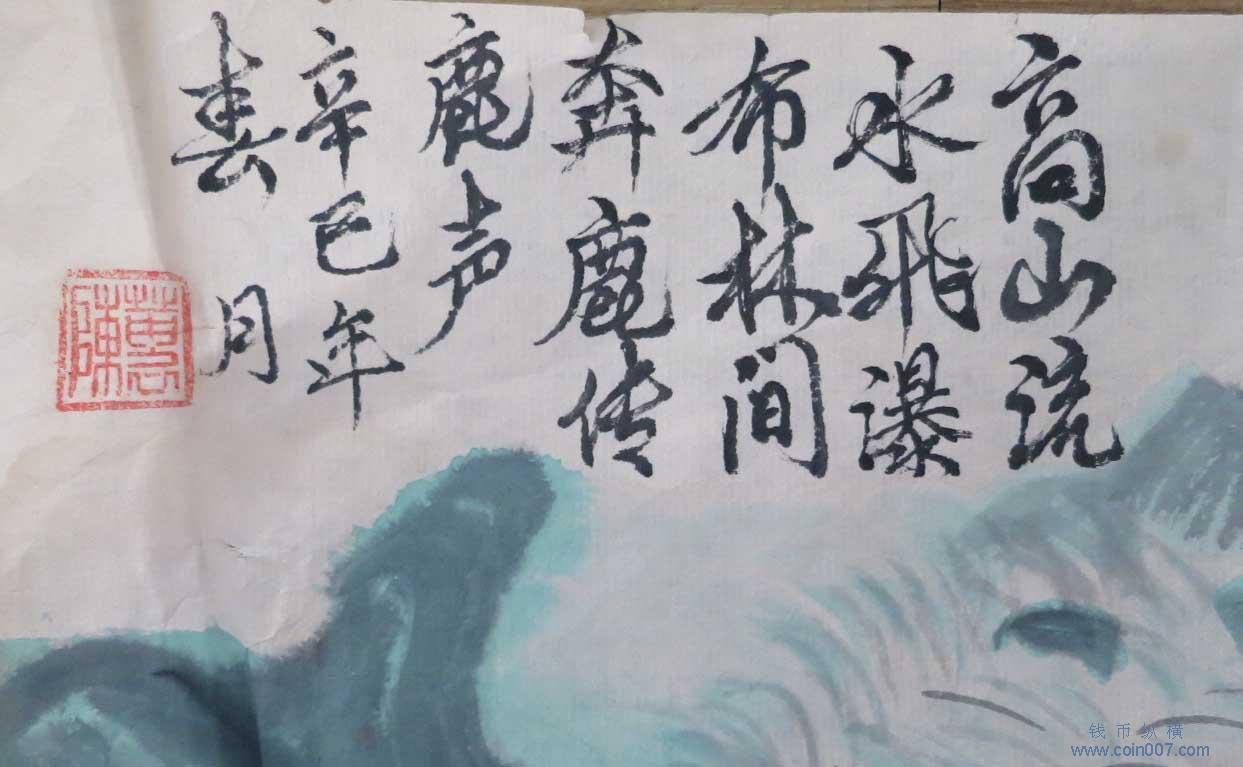 高山流
水飛瀑
布林间
奔鹿传
鹿声
辛巳年
春月
钱币纵横
www.coin007.com